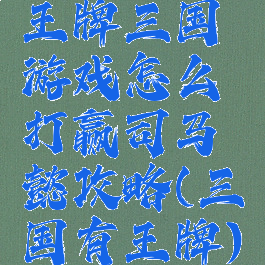 王牌三国
游戏怎么
打赢司马
懿攻略(三
国有王牌)